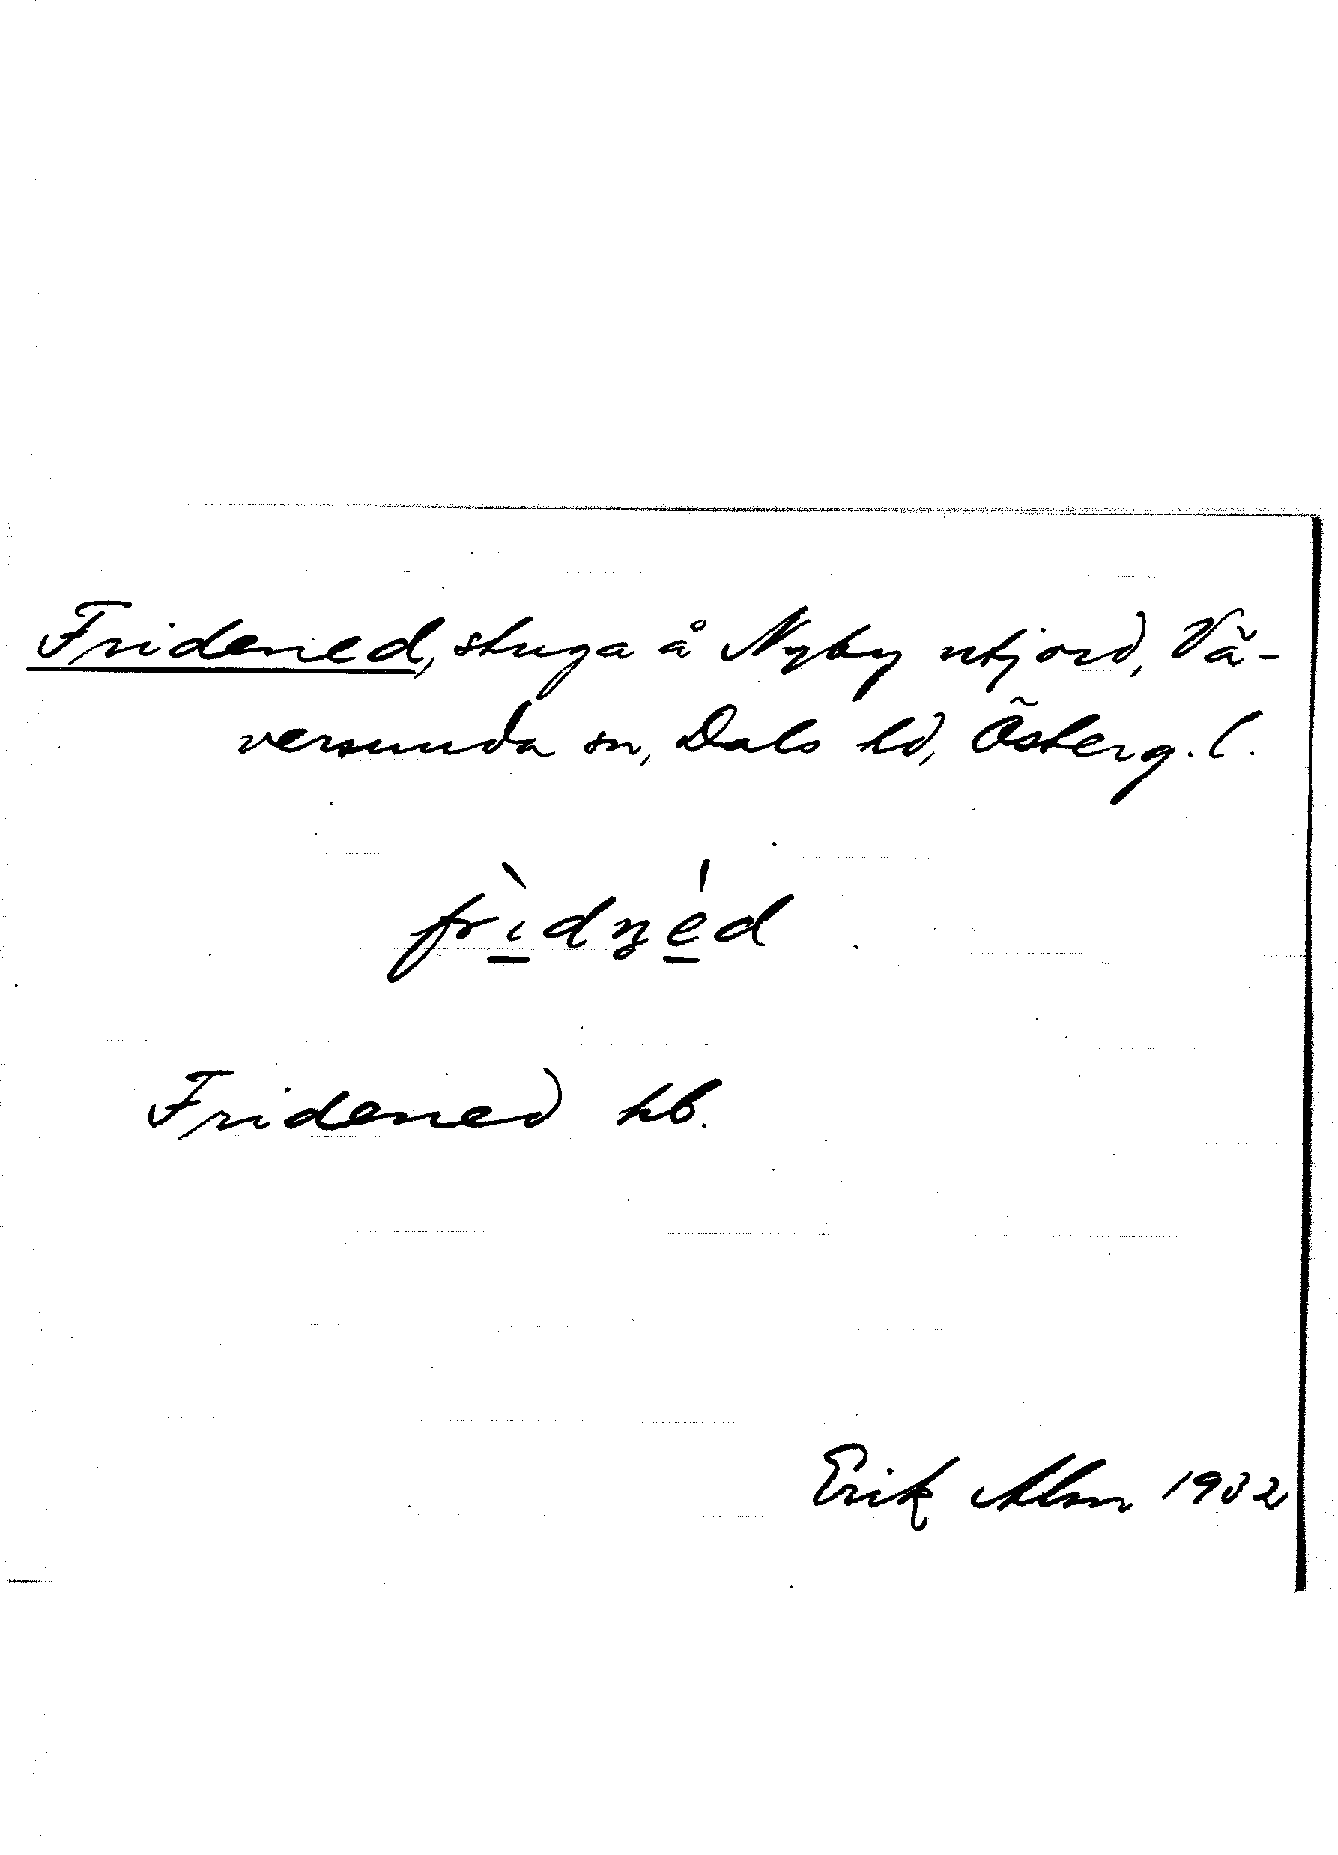 Fridened, stuga å Nyby utjord, Vä-
versunda sn, Dals hd, Österg. l.
frìdn̥éd
Fridened hb.
Erik Alm 1932